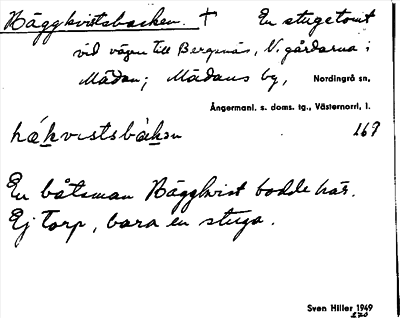 Häggkvistsbacken. † En stugetomt
vid vägen till Bergsnäs, N. gårdarna i
Mädan; Mädans by, Nordingrå sn,
Ångermanl. s. doms. tg., Västernorrl, l.
hä́kvistsbàkɘn 169
En båtsman Häggkvist bodde här.
Ej torp, bara en stuga.
Sven Hiller 1949